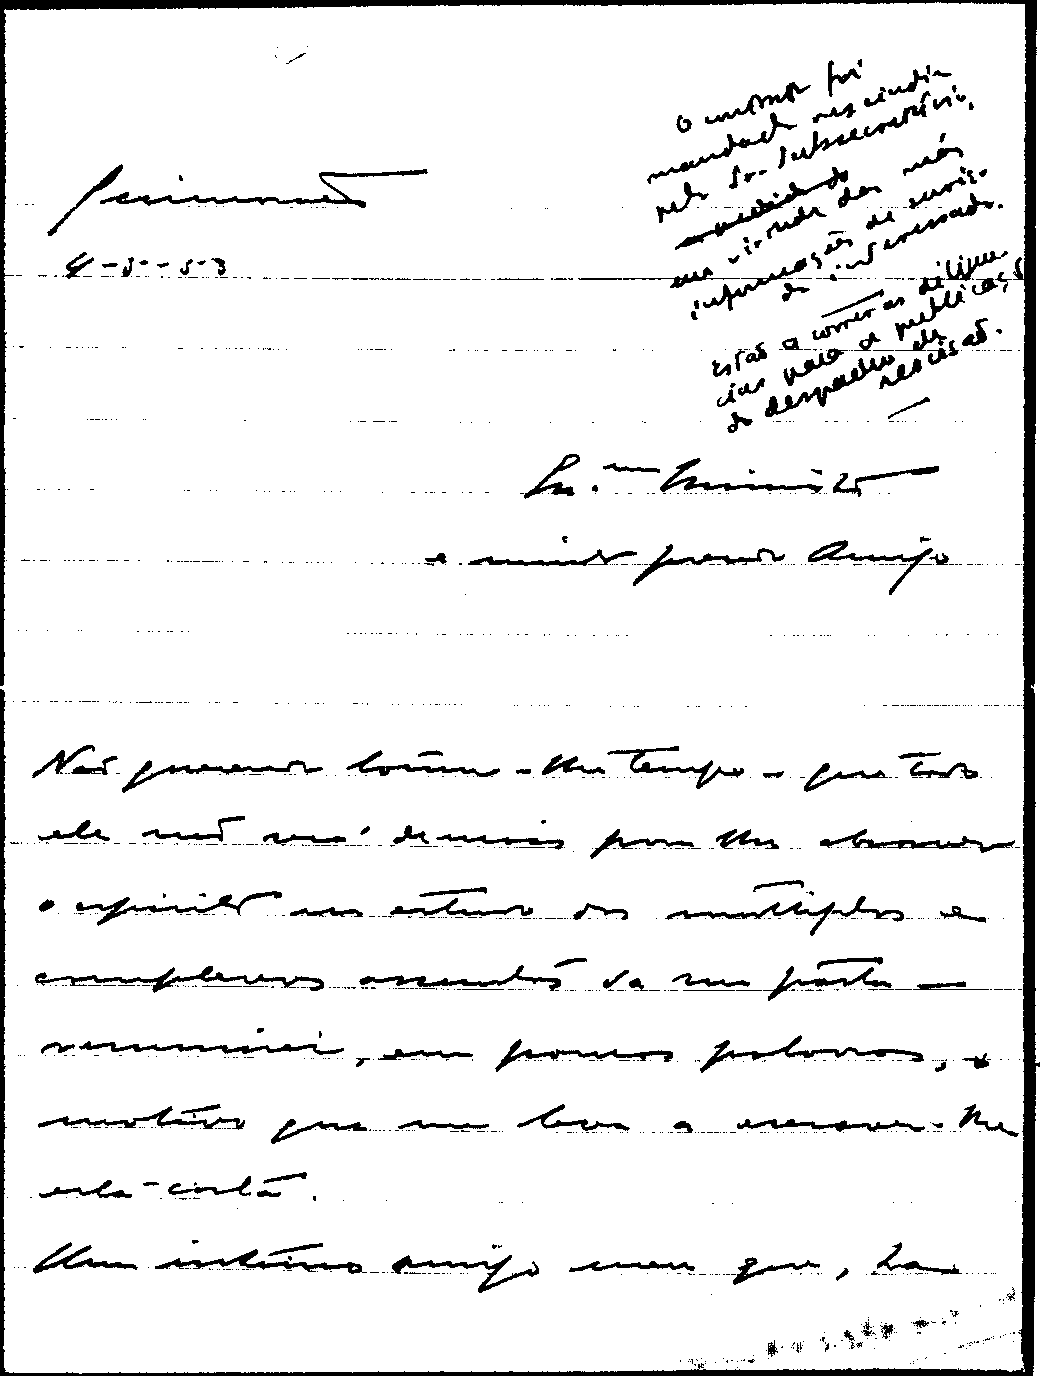 Guimarães
4-5-53
o mesmo foi
mandado rescindir
pelo Sr. Subsecretário,
em virtude das más
informações de serviço
do interessado.
Estão a correr as diligên-
cias para a publicação
do despacho de
rescisão.
Ex.mo Ministro
e meu prezado Amigo
Não querendo tomar-lhe tempo - que todo
ele não será demais para lhe absorver
o espírito no estudo dos multiplos e
complexos assuntos da sua pasta —
resumirei, em poucas palavras, o
motivo que me leva a escrever-lhe
esta carta.
Um intimo amigo meu que, ha